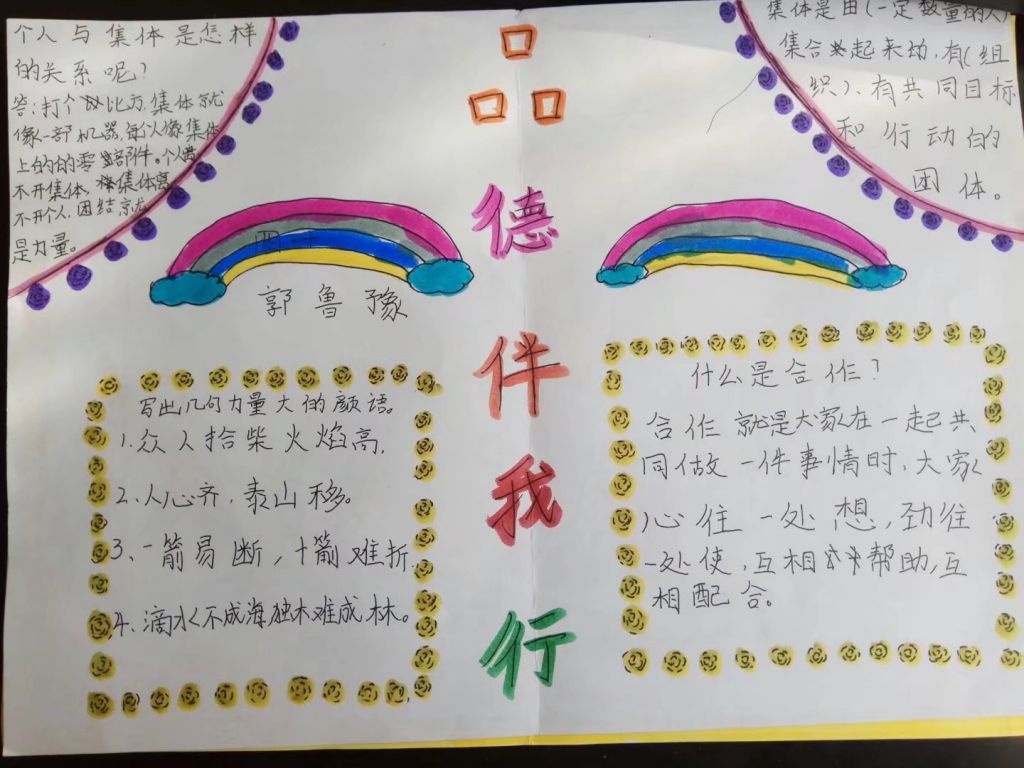 个人与集体是怎样
的关系呢?
答:打个比方,集体就
像一部机器,每个人像集体
上的的零部件。个人离
不开集体,集体离
不开个人,团结就
是力量。
品
德
伴
我
行
集体是由(一定数量的人)
集合起来的,有(组
织)、有共同目标
和行动的
团体。
四
郭鲁豫
写出几句力量大的颜语。
1.众人拾柴火焰高,
2、人心齐,泰山移。
3、一箭易断,十箭难折,
4、滴水不成海,独木难成林。
什么是合作?
合作就是大家在一起共
同做一件事情时,大家
心往一处想,劲往
一处使,互相帮助,互
相配合。